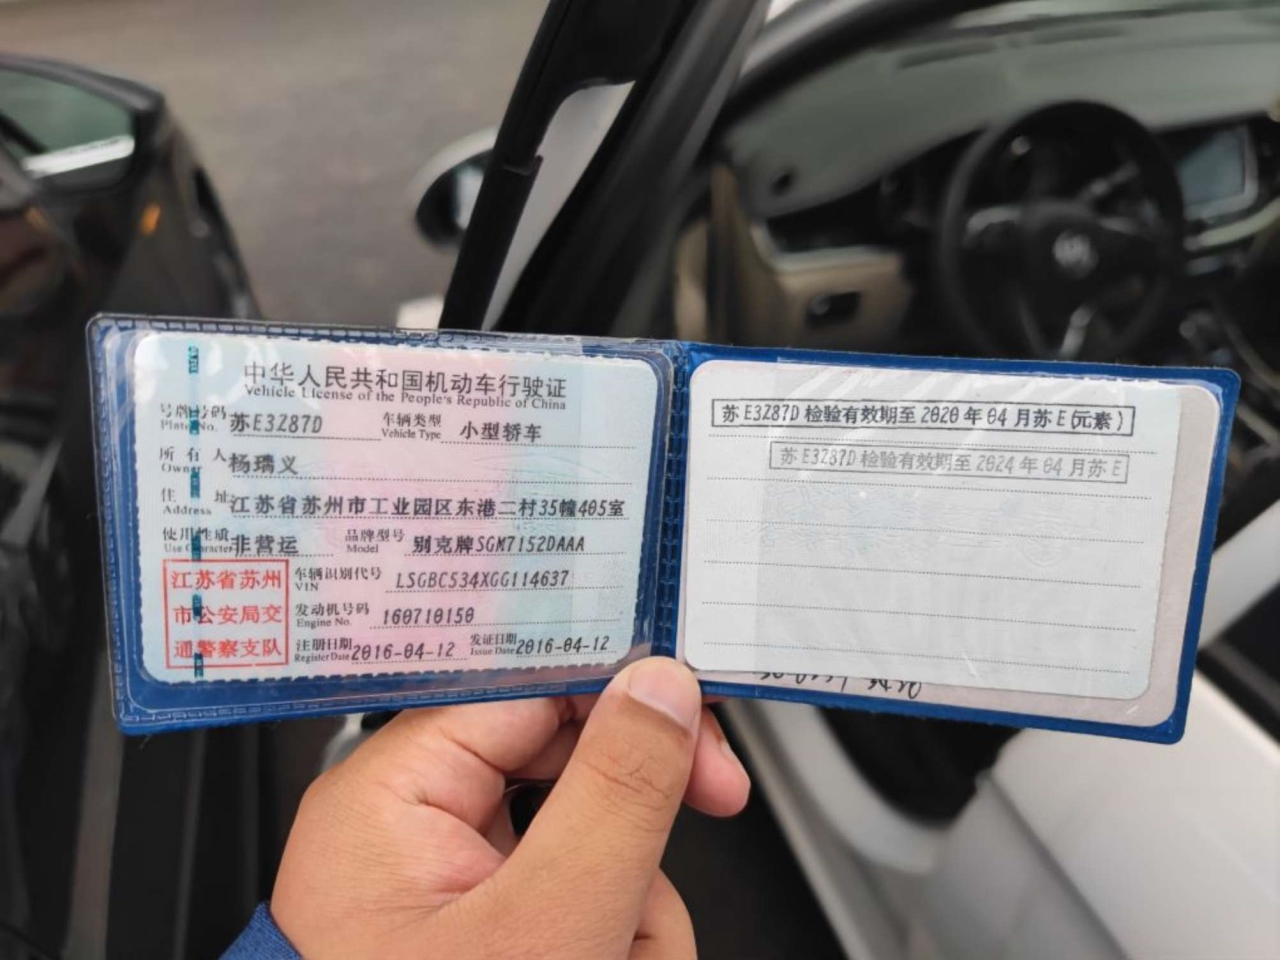 中华人民共和国机动车行驶证
Vehicle License of the People's Republic of China
号牌号码 苏E3Z87D 车辆类型 小型轿车
Plate No. Vehicle Type
所有人 杨瑞义
Owner
住址 江苏省苏州市工业园区东港二村35幢405室
Address
使用性质 非营运 品牌型号 别克牌SGM7152DAAA
Use Character Model
江苏省苏州
市公安局交
通警察支队
车辆识别代号 LSGBC534XGG114637
VIN
发动机号码 160710150
Engine No.
注册日期 2016-04-12 发证日期 2016-04-12
Register Date Issue Date
苏E3Z87D检验有效期至2020年04月苏E(元素)
苏E3Z87D检验有效期至2024年04月苏E